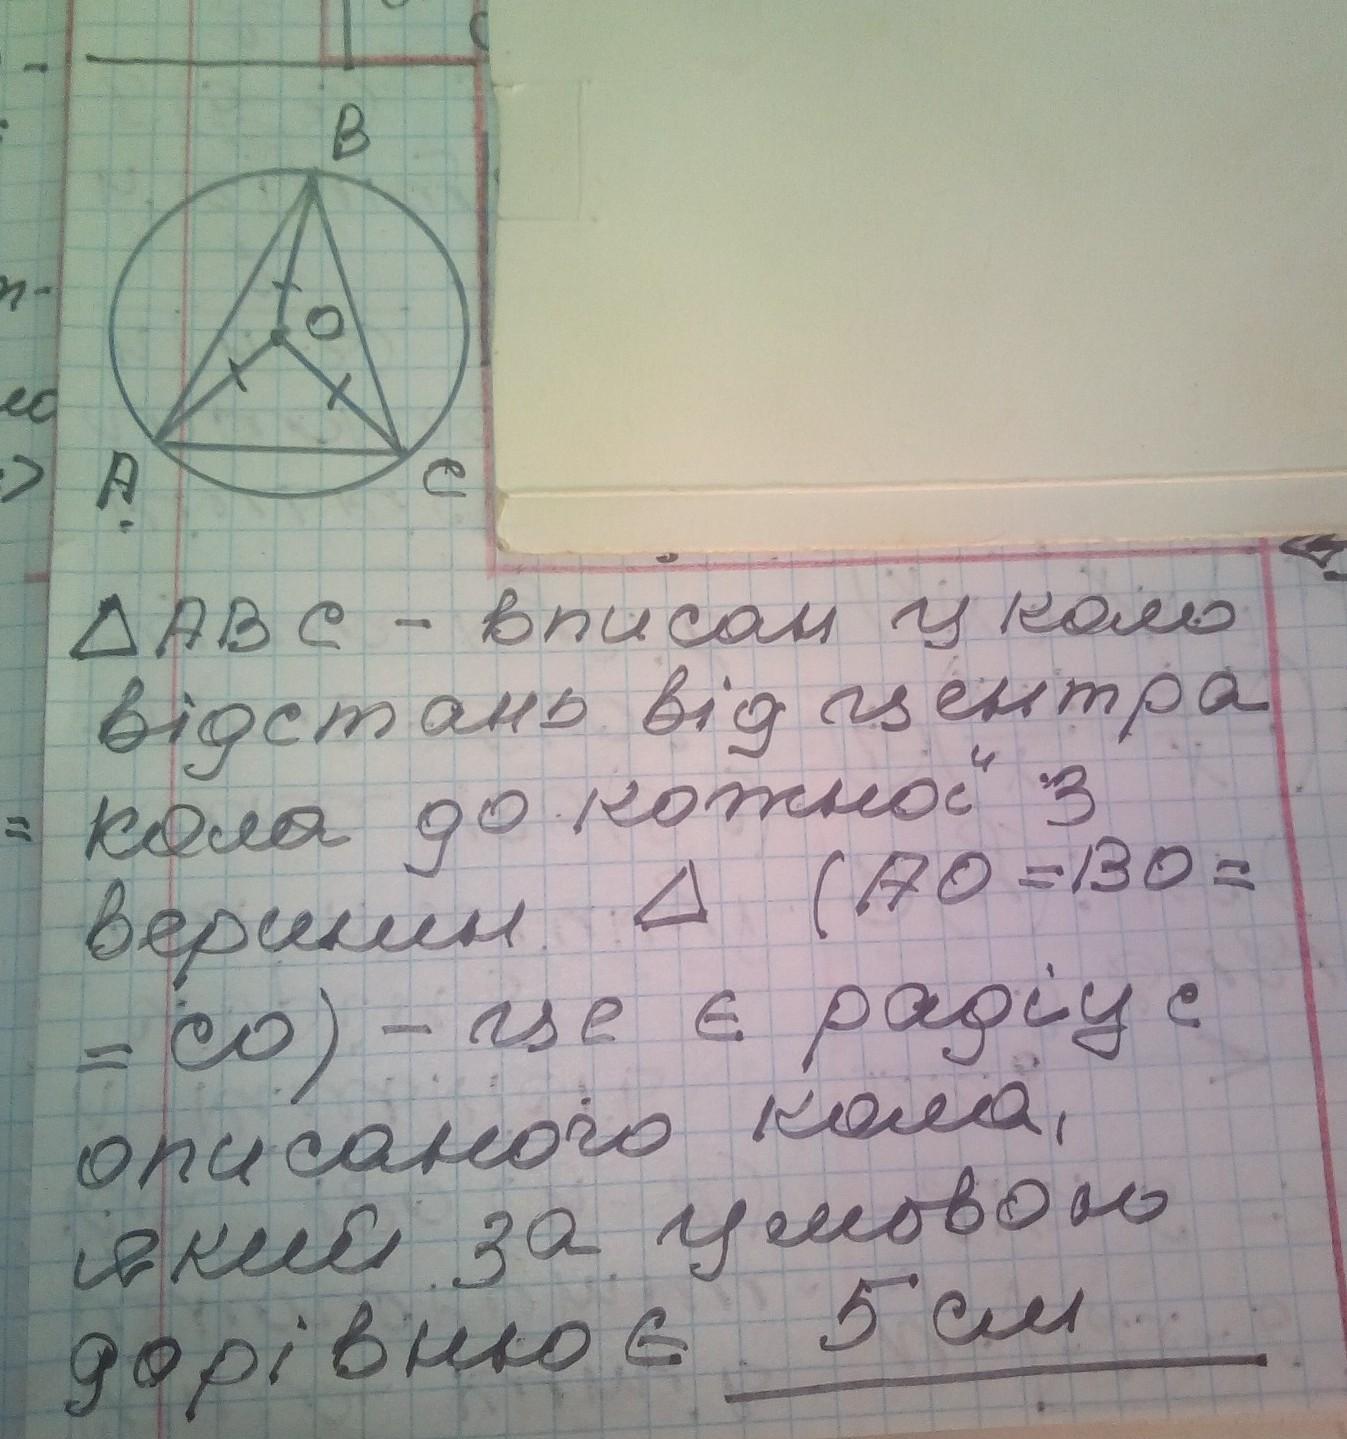 B
O
A
C
△ABC - вписан у коло
відстань від центра
кола до кожної з
вершин △ (AO = BO =
= CO) - це є радіус
описаного кола,
який за умовою
дорівнює 5 см